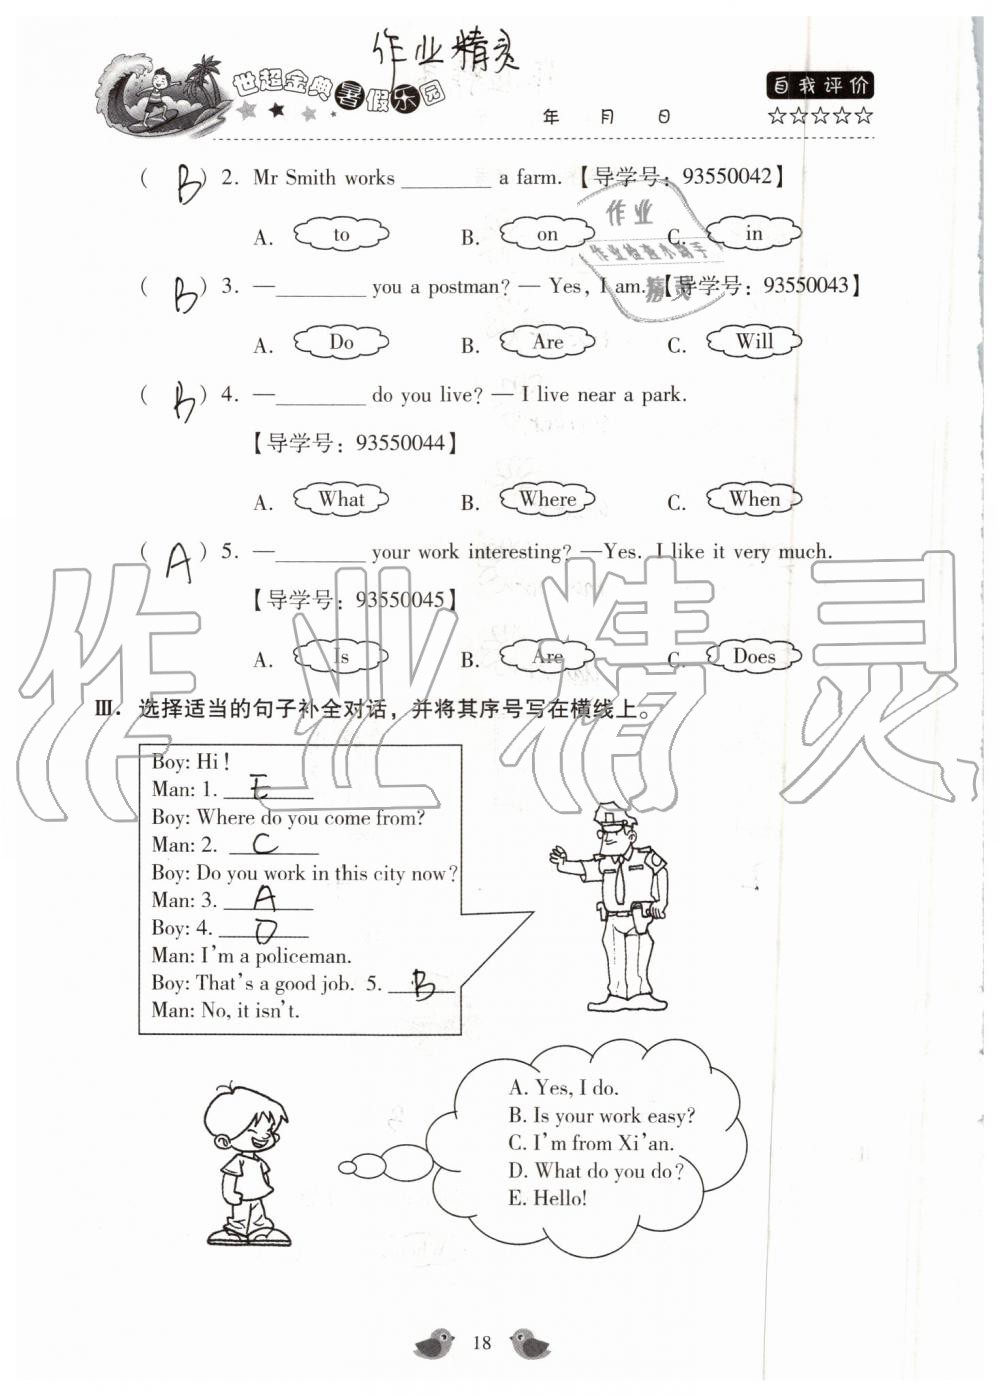 作业精灵
世超金典暑假乐园
自我评价
年 月 日 ☆☆☆☆☆
( B ) 2. Mr Smith works ________ a farm.【导学号：93550042】
A. to B. on C. in
( B ) 3. —________ you a postman? — Yes, I am.【导学号：93550043】
A. Do B. Are C. Will
( B ) 4. —________ do you live? — I live near a park.
【导学号：93550044】
A. What B. Where C. When
( A ) 5. —________ your work interesting? —Yes. I like it very much.
【导学号：93550045】
A. Is B. Are C. Does
Ⅲ. 选择适当的句子补全对话，并将其序号写在横线上。
Boy: Hi!
Man: 1. E
Boy: Where do you come from?
Man: 2. C
Boy: Do you work in this city now?
Man: 3. A
Boy: 4. D
Man: I'm a policeman.
Boy: That's a good job. 5. B
Man: No, it isn't.
A. Yes, I do.
B. Is your work easy?
C. I'm from Xi'an.
D. What do you do?
E. Hello!
18
作业
作业检查小助手
精灵
作业精灵